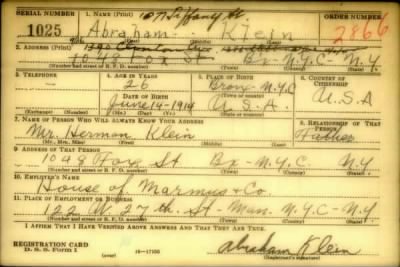 SERIAL NUMBER
1. NAME (Print)
ORDER NUMBER
1025
Abraham Klein
2866
(First) (Middle) (Last)
2. ADDRESS (Print)
Fox St Bx-N.Y.C-N.Y
(Number and street or R. F. D. number) (Town) (County) (State)
3. TELEPHONE
4. AGE IN YEARS
5. PLACE OF BIRTH
6. COUNTRY OF CITIZENSHIP
26
Bronx-N.Y.C
(Town or county)
DATE OF BIRTH
June-14-1914
U.S.A
U.S.A
(Exchange) (Number) (Mo.) (Day) (Yr.) (State or country)
7. NAME OF PERSON WHO WILL ALWAYS KNOW YOUR ADDRESS
8. RELATIONSHIP OF THAT PERSON
Mr. Herman Klein
Father
(Mr., Mrs., Miss) (First) (Middle) (Last)
9. ADDRESS OF THAT PERSON
Fox St Bx-N.Y.C. N.Y
(Number and street or R. F. D. number) (Town) (County) (State)
10. EMPLOYER'S NAME
House of & Co.
11. PLACE OF EMPLOYMENT OR BUSINESS
122 W 27th. St-Man. N.Y.C-N.Y
(Number and street or R. F. D. number) (Town) (County) (State)
I AFFIRM THAT I HAVE VERIFIED ABOVE ANSWERS AND THAT THEY ARE TRUE.
REGISTRATION CARD
D. S. S. Form 1
16-17105
Abraham Klein
(Registrant's signature)